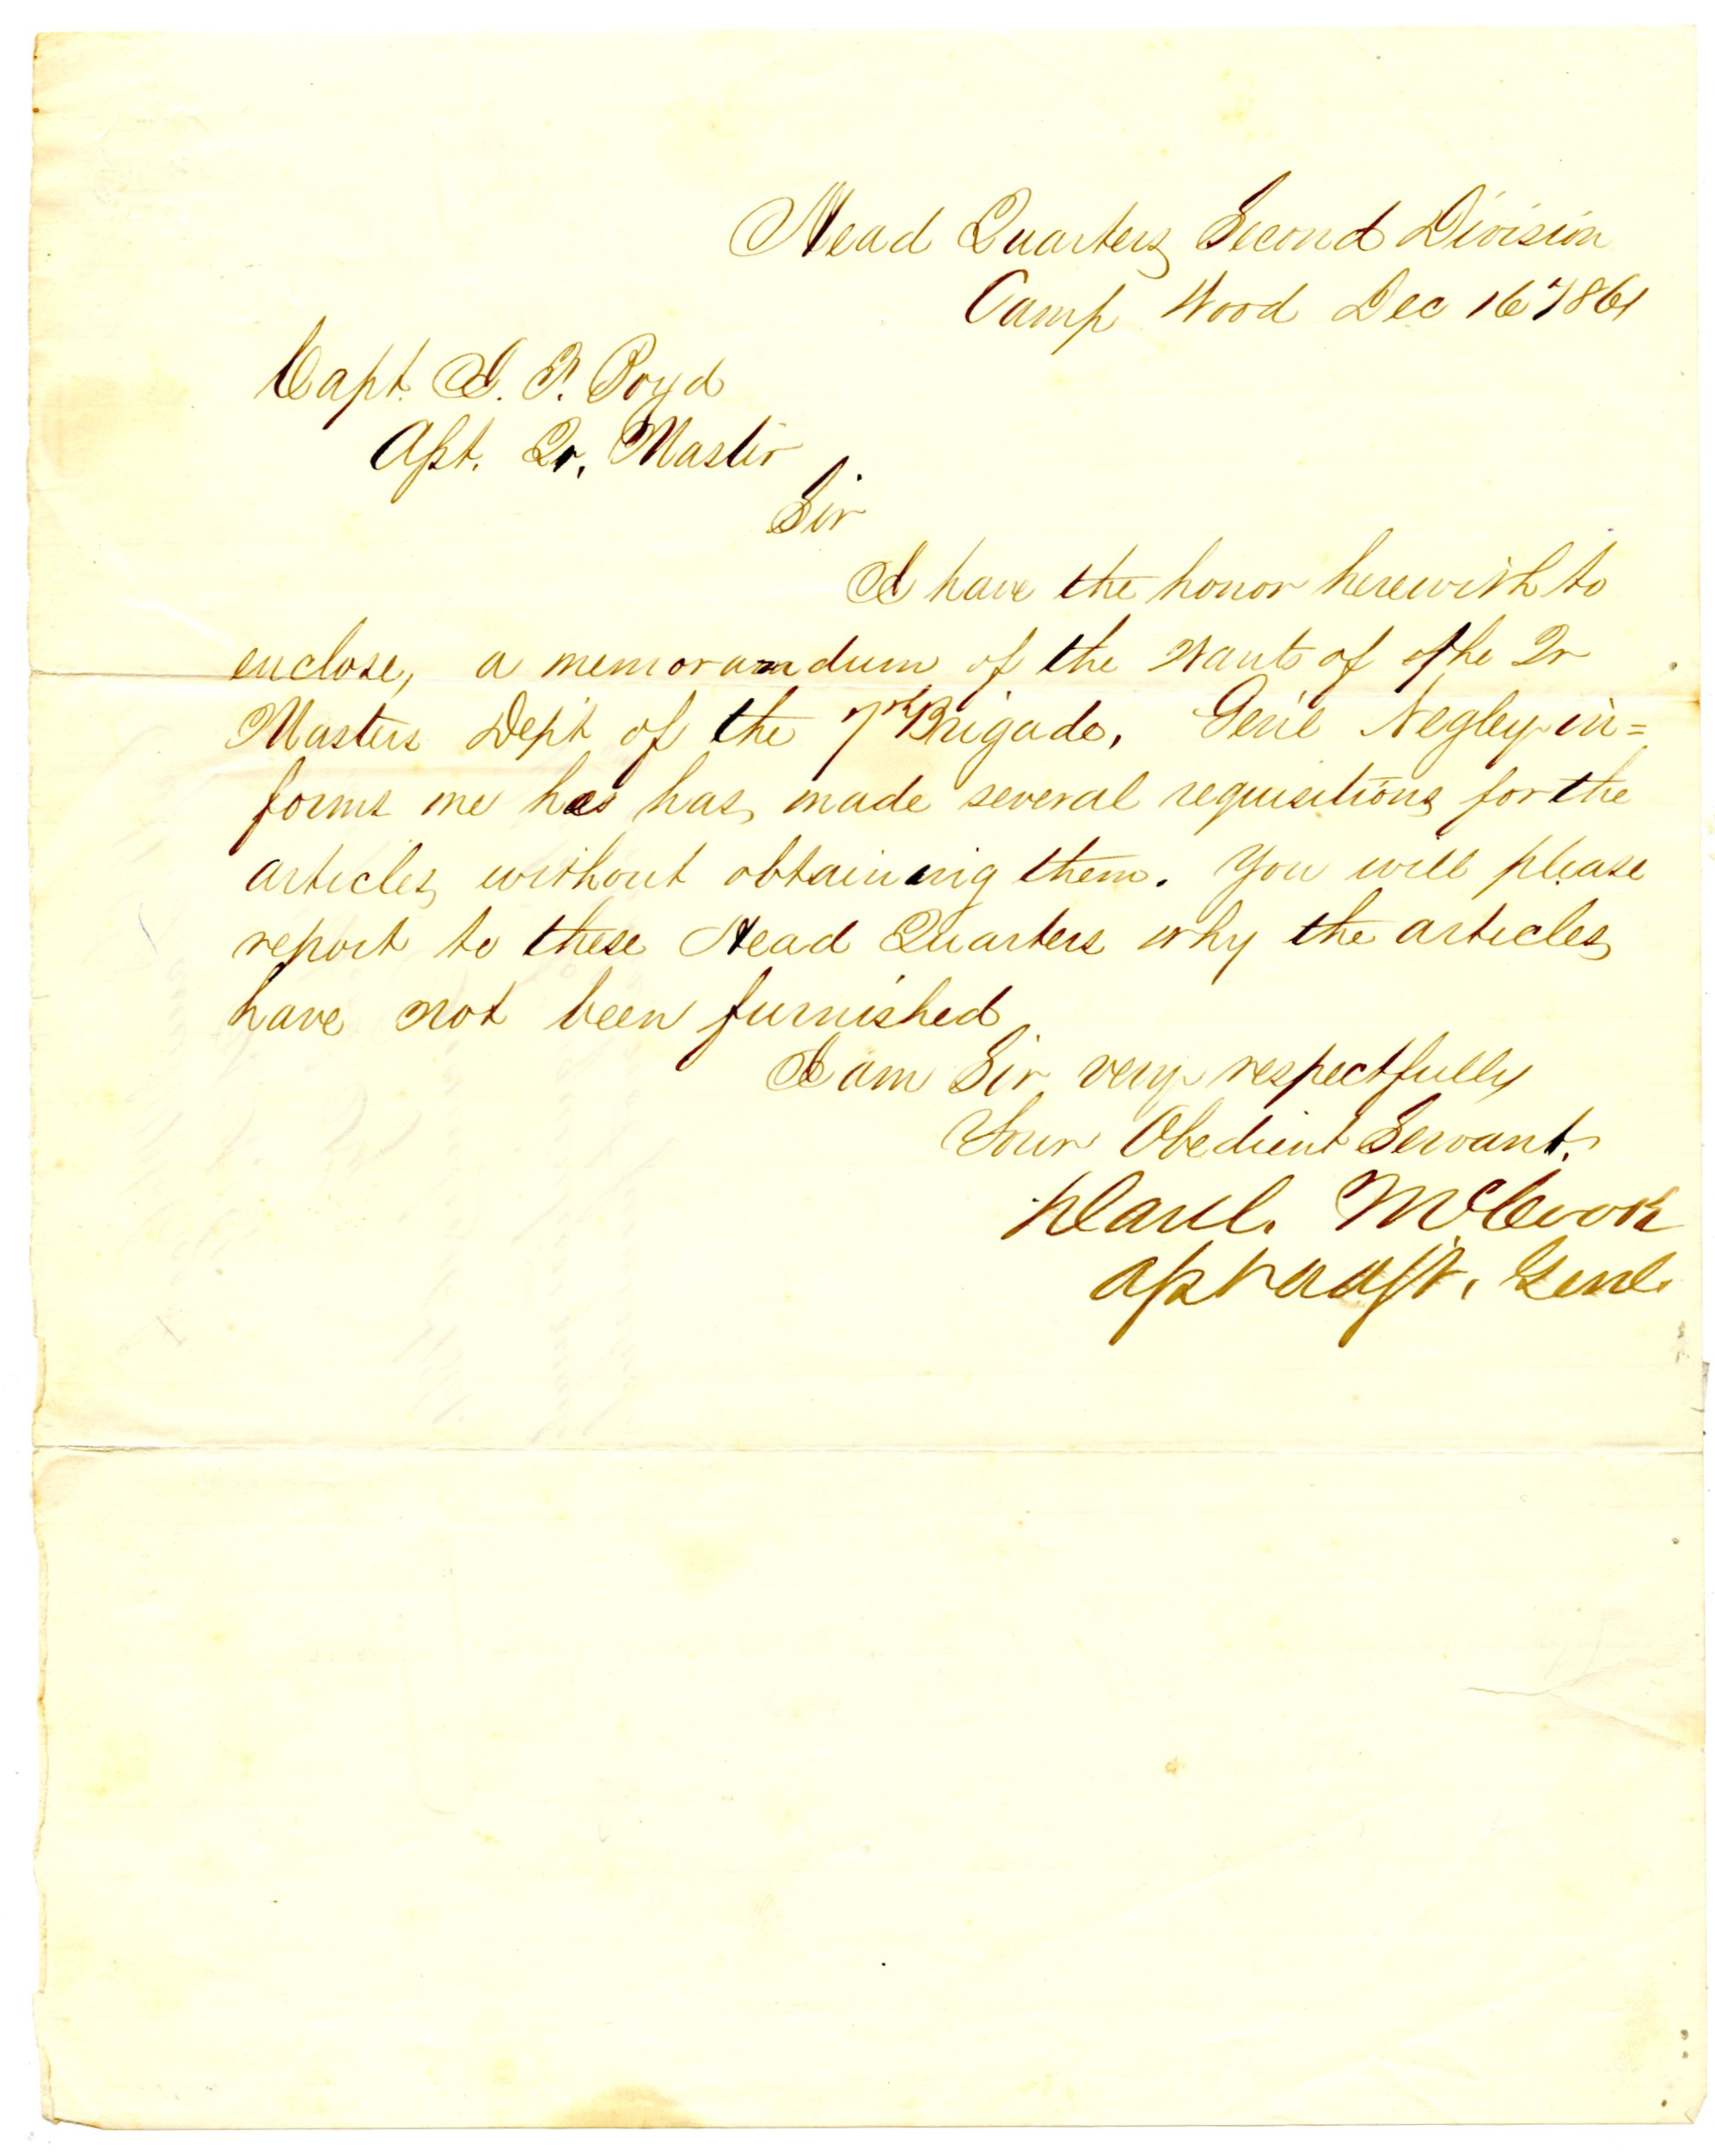 Head Quarters Second Division
Camp Wood Dec 16" 1861
Capt. J. F. Boyd
Asst. Qr. Master
Sir
I have the honor herewith to
enclose, a memorandum of the Wants of the Qr
Masters Dep't of the 7th Brigade, Gen'l Negley in=
forms me has has made several requisitions for the
articles without obtaining them. You will please
report to these Head Quarters why the articles
have not been furnished
I am Sir very respectfully
Your Obedient Servant,
Danl. McCook
Asst Adjt. Genl.